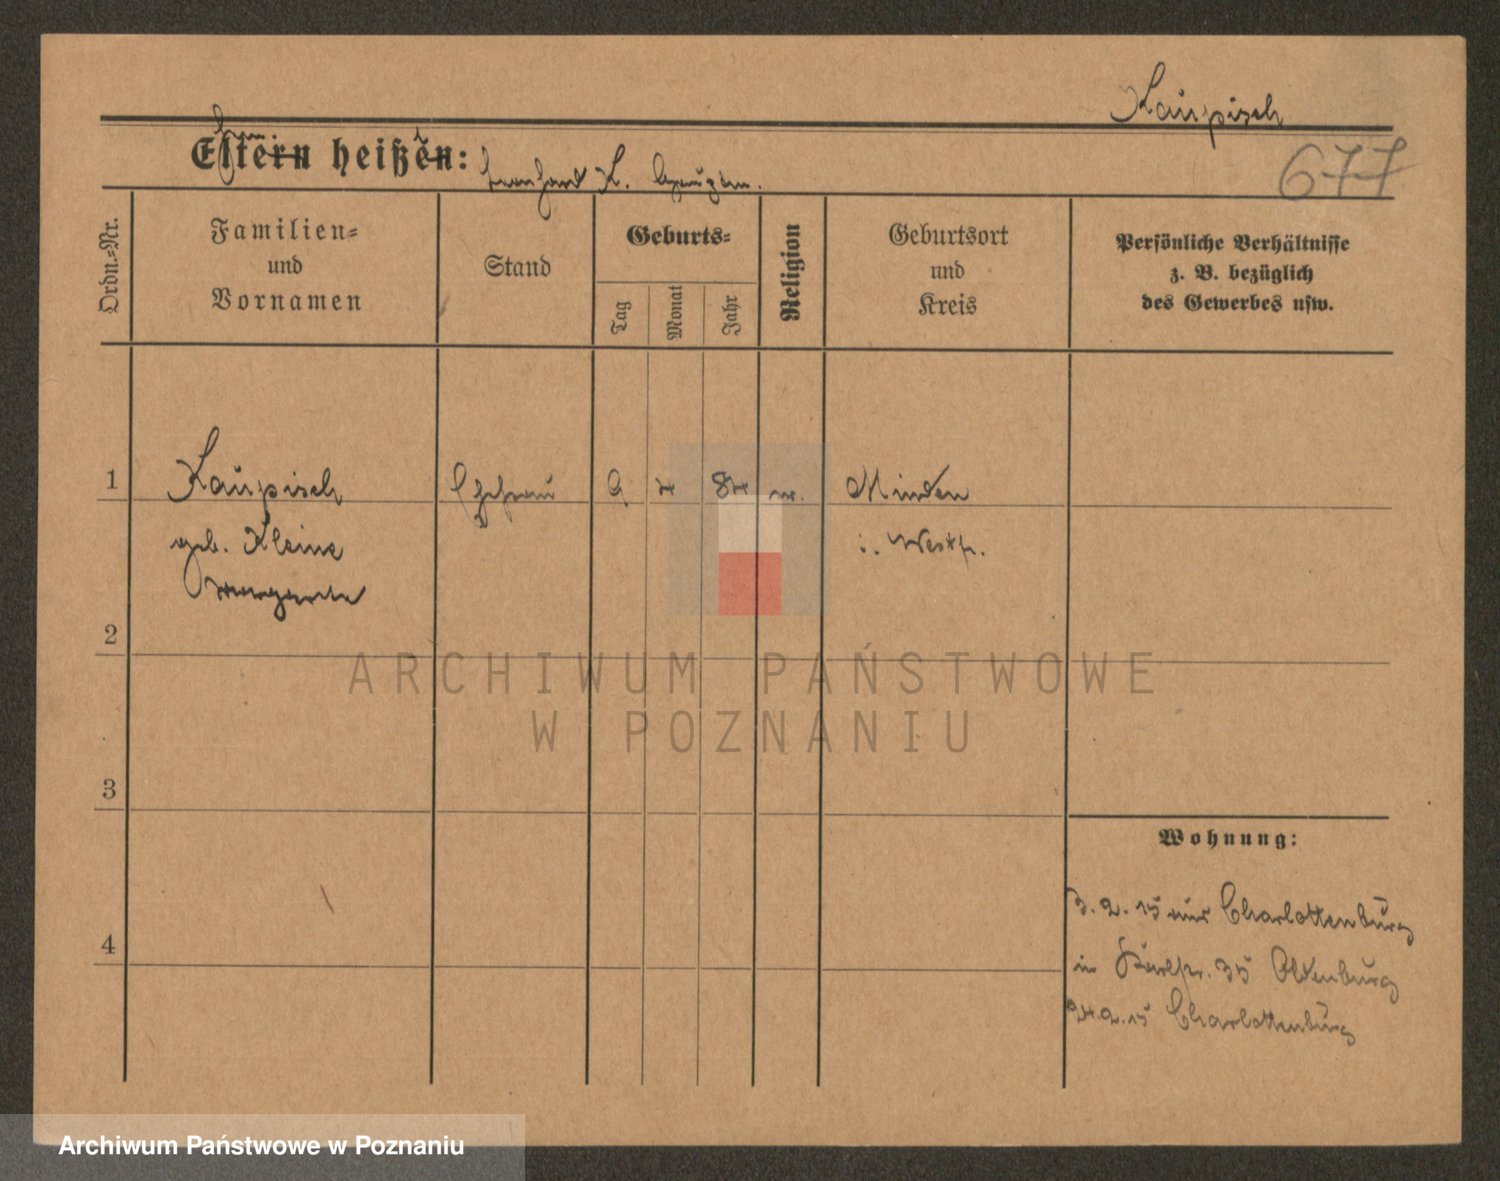 Kaupisch
Eltern heißen:
K. Hauptm.
677
Ordn.-Nr.
Familien-
und
Vornamen
Stand
Geburts-
Tag
Monat
Jahr
Religion
Geburtsort
und
Kreis
Persönliche Verhältnisse
z. B. bezüglich
des Gewerbes usw.
1
Kaupisch
Ehefrau
9
84
Minden
geb. Kleine
i. Westf.
Margarete
2
ARCHIWUM PAŃSTWOWE
W POZNANIU
3
Wohnung:
3.2.15 aus Charlottenburg
4
in 35 Altenburg
24.2.15 Charlottenburg
Archiwum Państwowe w Poznaniu